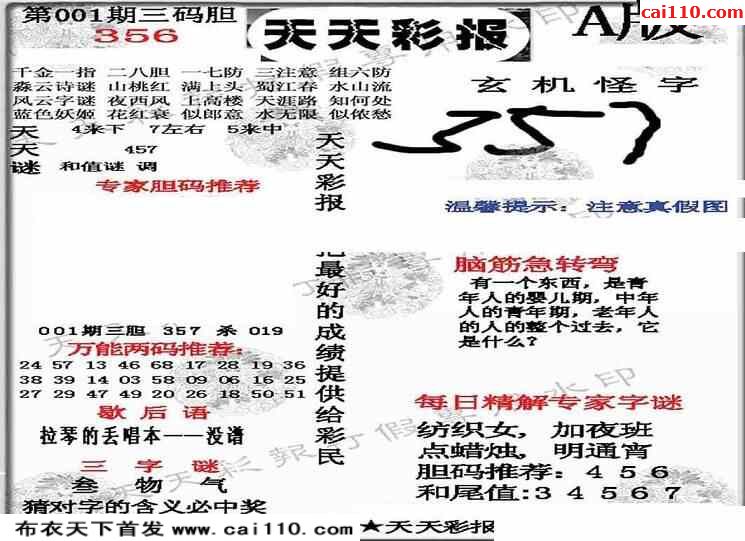 第001期三码胆
356
天天彩报
A版
cai110.com
千金一指 二八胆 一七防 三注意 组六防
淼云诗谜 山桃红 满上头 蜀江春 水山流
风云字谜 夜西风 上高楼 天涯路 知何处
蓝色妖姬 花红衰 似郎意 水无限 似侬愁
天天谜
4来下 7左右 5来中
457
和值谜 调
专家胆码推荐
001期三胆 357 杀 019
万能两码推荐:
24 57 13 46 68 17 28 19 36
38 39 14 03 58 09 06 16 25
27 29 47 49 20 26 18 50 51
歇后语
拉琴的丢唱本——没谱
三字谜
叁 物 气
猜对字的含义必中奖
天天彩报
把最好的成绩提供给彩民
玄机怪字
357
温馨提示：注意真假图
脑筋急转弯
有一个东西，是青
年人的婴儿期，中年
人的青年期，老年人
的人的整个过去，它
是什么？
每日精解专家字谜
纺织女，加夜班
点蜡烛，明通宵
胆码推荐：456
和尾值:34567
布衣天下首发 www.cai110.com ★天天彩报